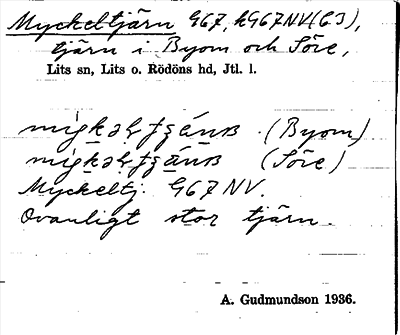 Myckeltjärn G67, kG67NV(C3),
tjärn i Byom och Söre,
Lits sn, Lits o. Rödöns hd, Jtl. l.
(Byom)
(Söre)
Myckeltj. G67 NV.
Ovanligt stor tjärn.
A. Gudmundson 1936.